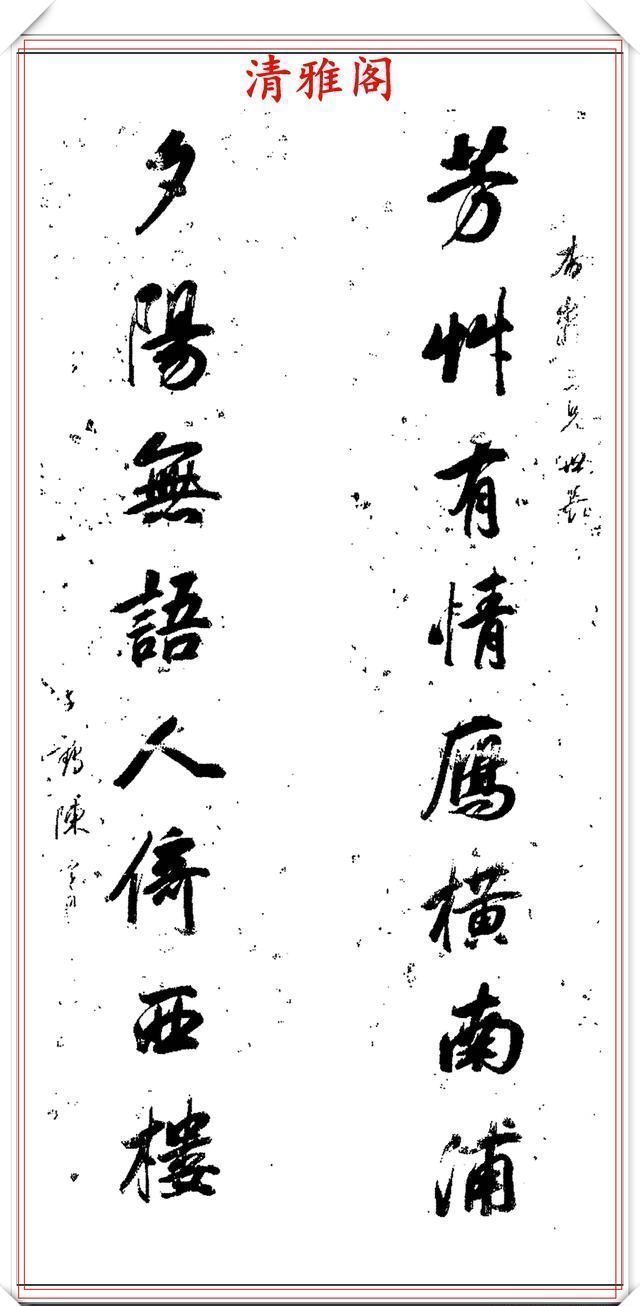 清雅阁
芳艸有情鴈橫南浦
夕陽無語人倚西樓